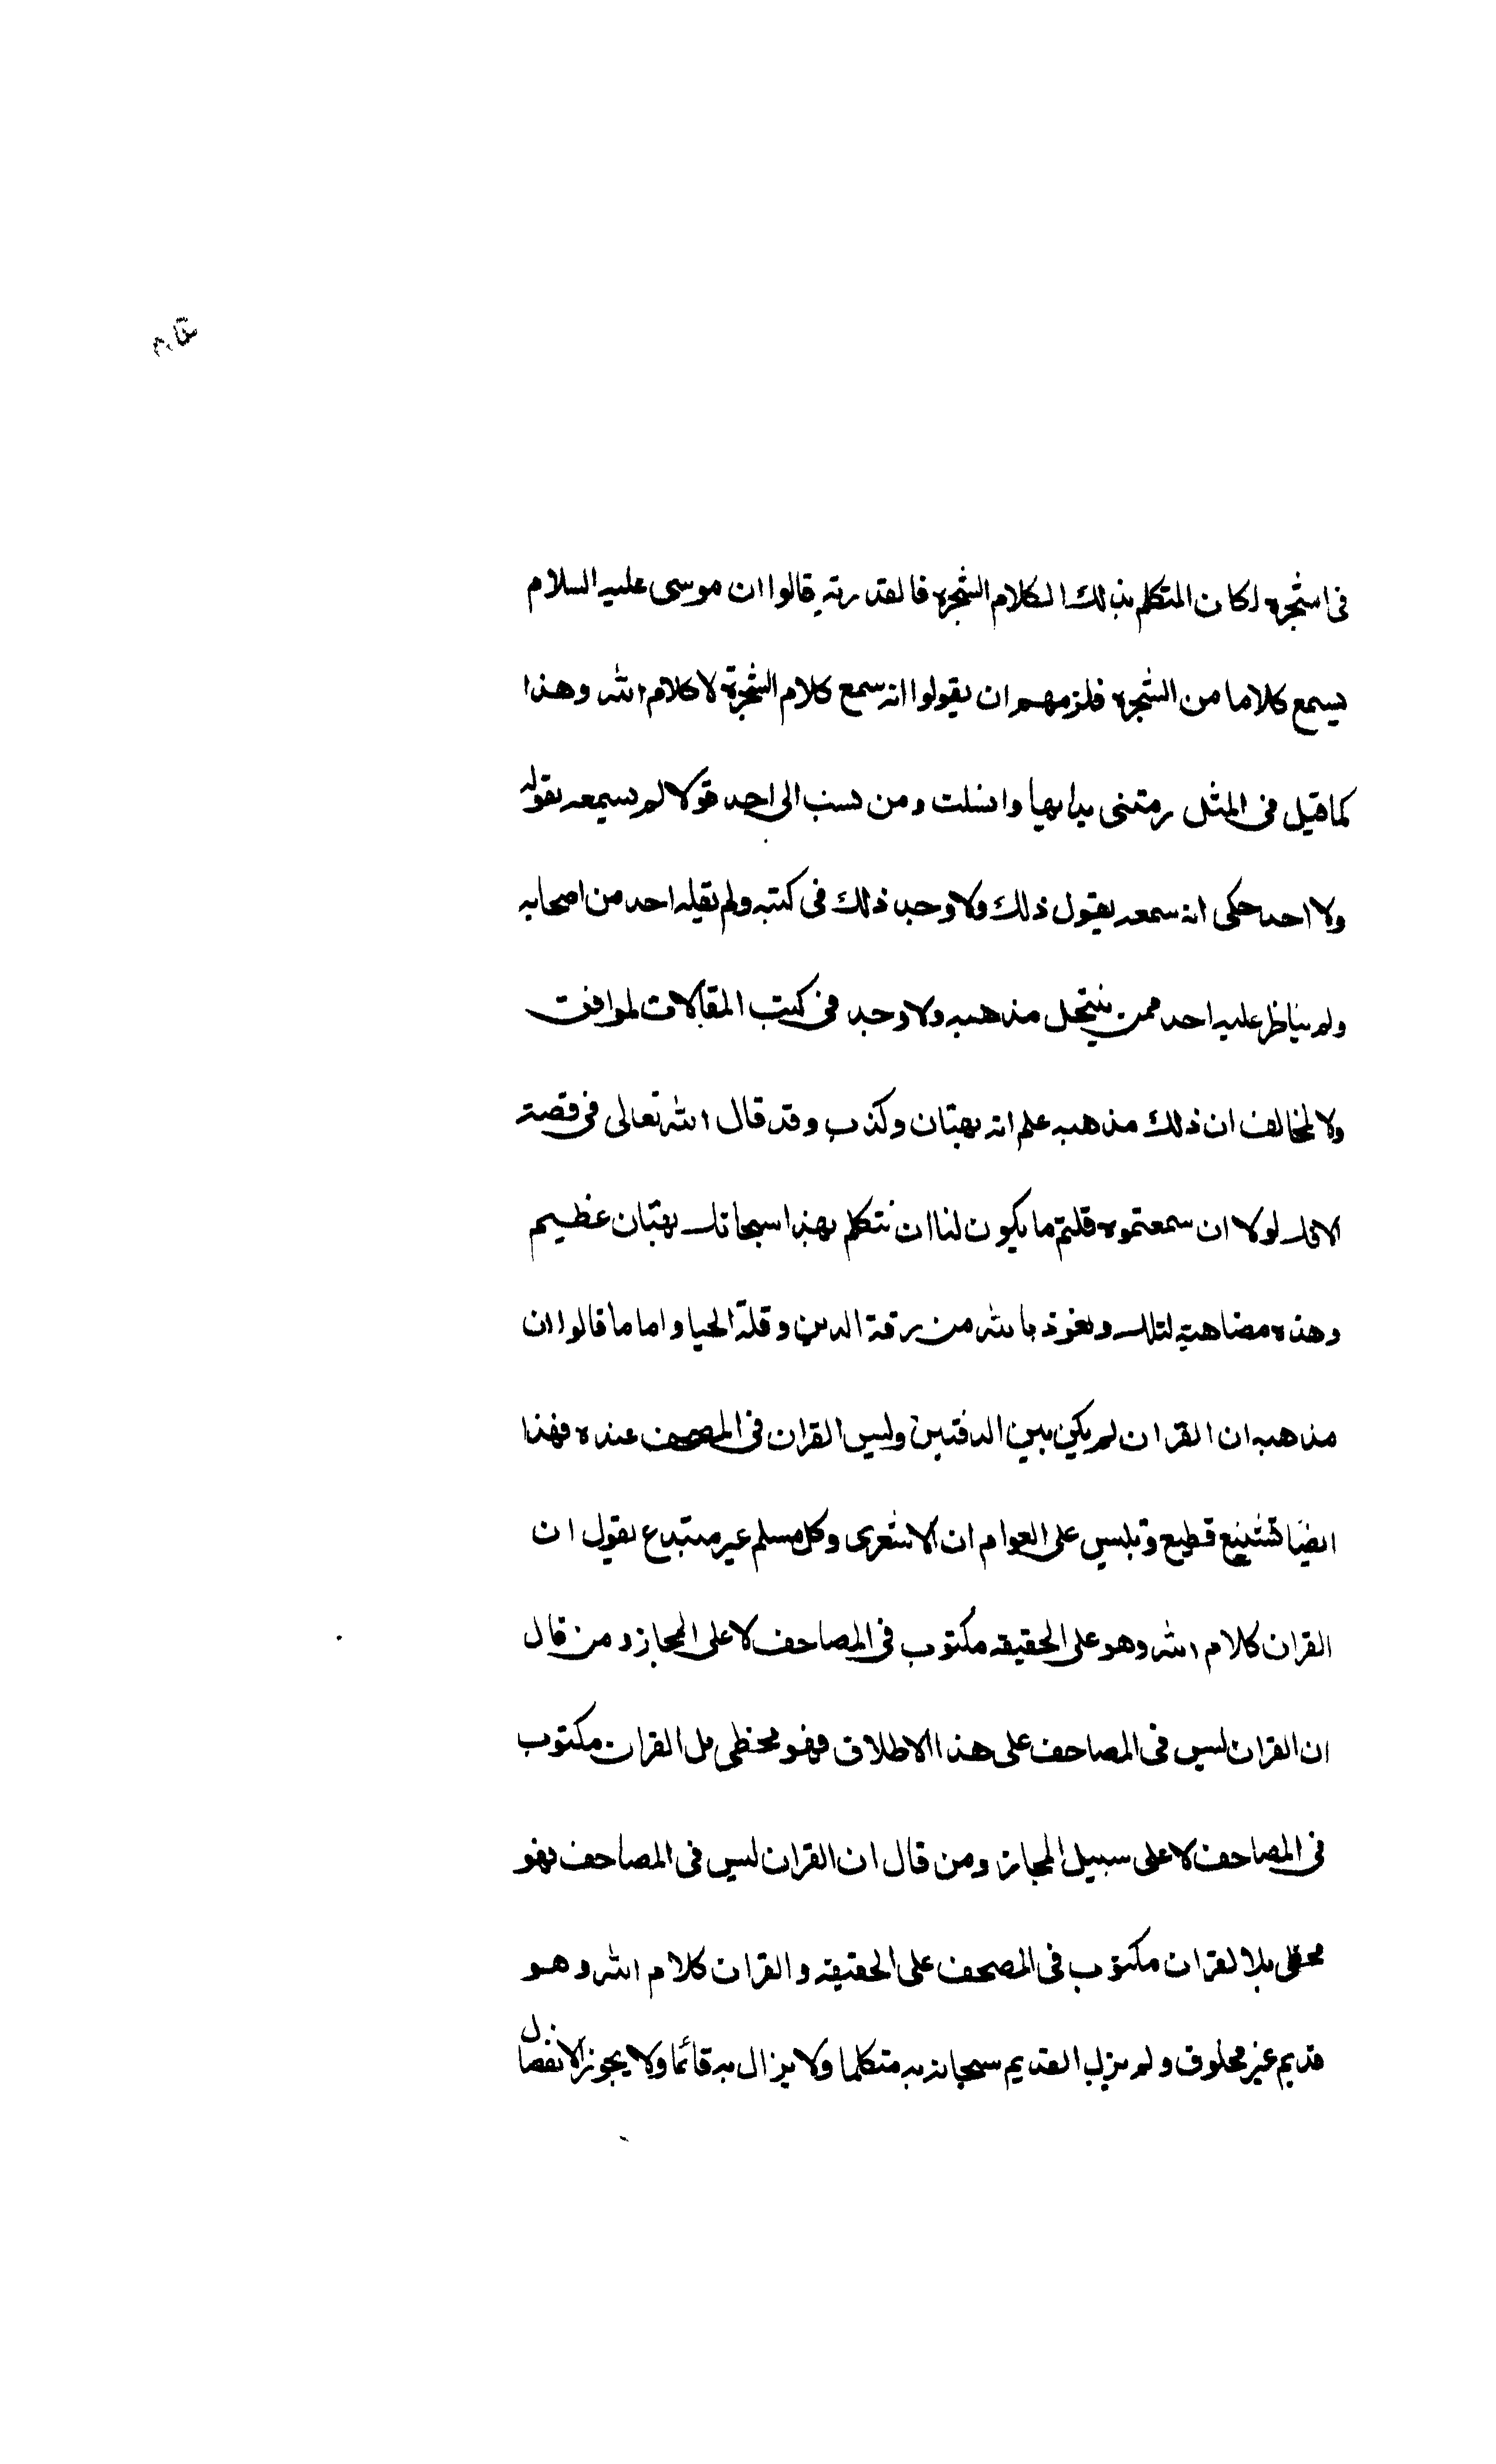 فى الشجره لكان المتكلم بذلك الكلام الشجره فالقدريه قالوا ان موسى عليه السلام
يسمع كلاما من الشجره فلزمهم ان يقولوا انه سمع كلام الشجرة لا كلام الله وهذا
كما قيل فى المثل رمتنى بدايها وانسلت ومن نسب الى احد قولا لم يسمعه يقوله
ولا احد حكى انه سمعه يقول ذلك ولا وجد ذلك فى كتبه ولم يقله احد من اصحابه
ولم يناظر عليه احد ممن ينتحل مذهبه ولا وجد فى كتب المقالات لموافق
ولا لمخالف ان ذلك مذهبه علم انه بهتان وكذب وقد قال الله تعالى فى قصة
الافك لولا ان سمعتموه قلتم ما يكون لنا ان نتكلم بهذا سبحانك بهتان عظيم
وهذه مضاهية لتلك ونعوذ بالله من رقة الدين وقلة الحيا واما ما قالوا ان
مذهبه ان القران لم يكن بين الدفتين وليس القران فى المصحف عنده فهذا
ايضا تشنيع فظيع وتلبيس على العوام ان الاشعرى وكل مسلم غير مبتدع يقول ان
القران كلام الله وهو على الحقيقه مكتوب فى المصاحف لا على المجاز ومن قال
ان القران ليس فى المصاحف على هذا الاطلاق فهو مخطى بل القران مكتوب
فى المصاحف لا على سبيل المجاز ومن قال ان القران ليس فى المصاحف فهو
مخطى بل القران مكتوب فى المصحف على الحقيقه والقران كلام الله وهو
قديم غير مخلوق ولم يزل القديم سبحانه به متكلما ولا يزال به قائما ولا يجوز الانفصال